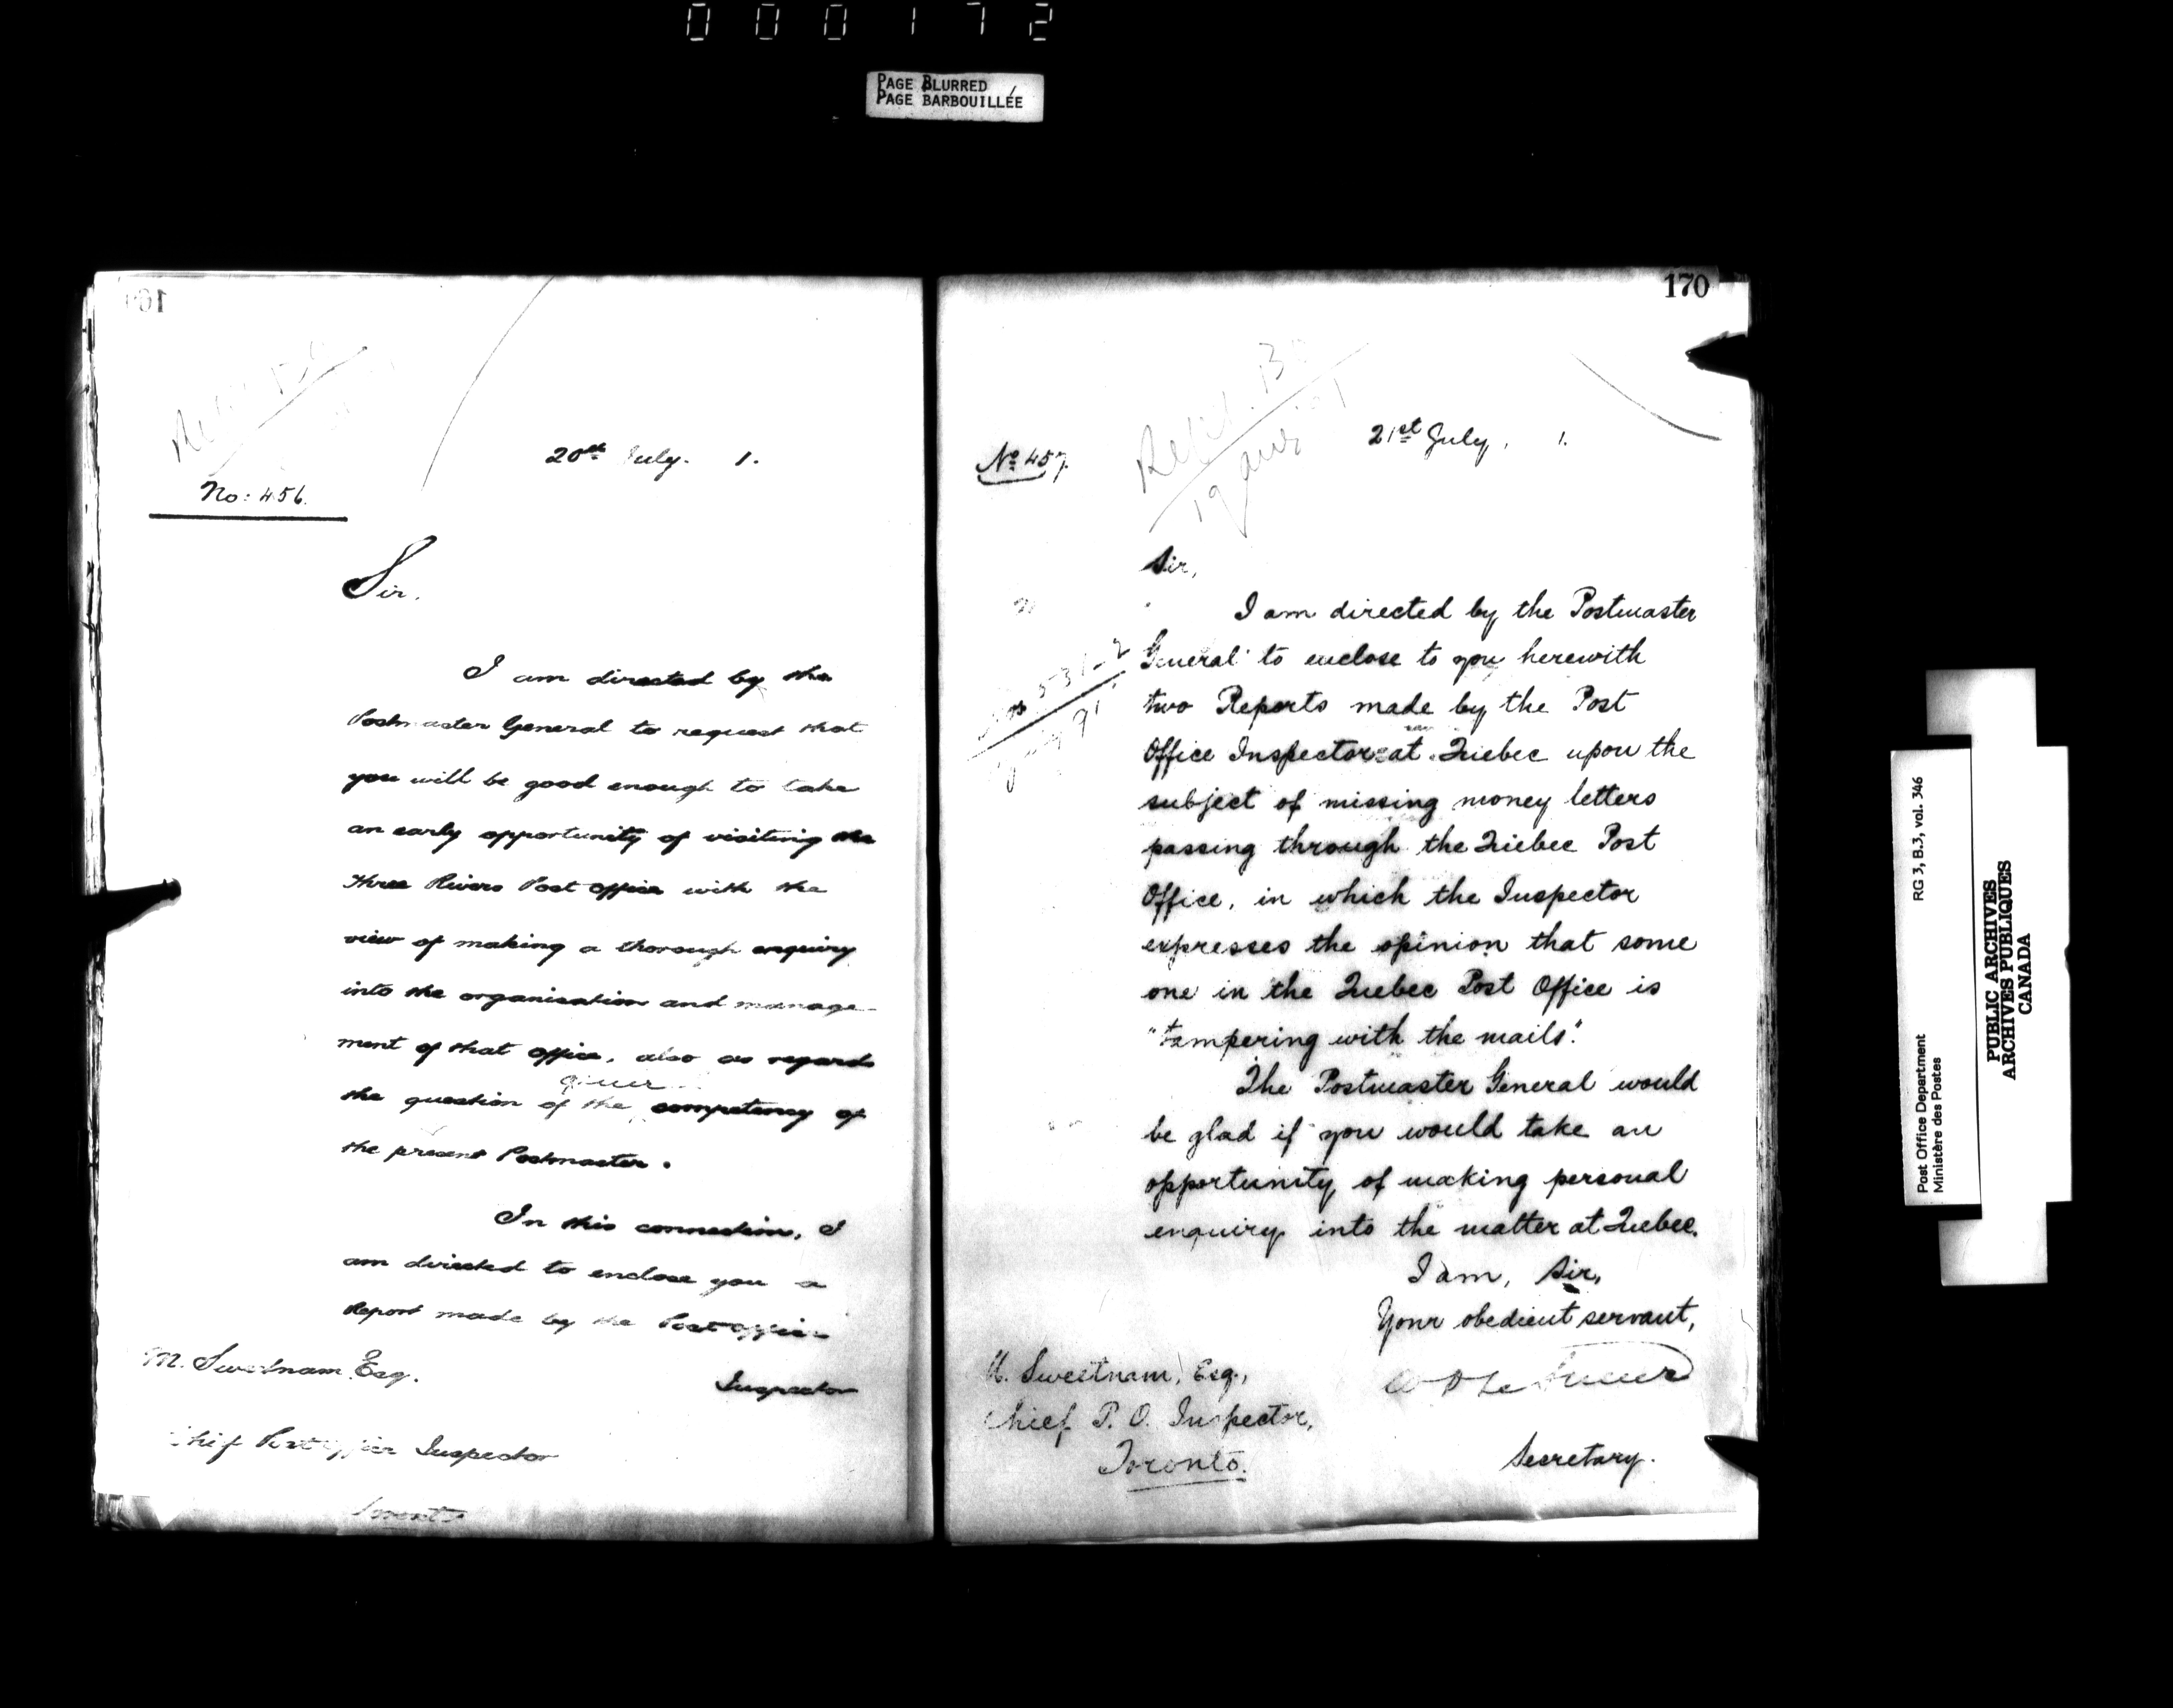 000172
PAGE BLURRED
PAGE BARBOUILLÉE
20th July. 1.
No: 456.
Sir.
I am directed by the
Postmaster General to request that
you will be good enough to take
an early opportunity of visiting the
Three Rivers Post office with the
view of making a thorough enquiry
into the organisation and manage-
ment of that office, also as regards
the question of the competency of
the present Postmaster.
In this connection, I
am directed to enclose you a
Report made by the Post office
Inspector
M. Sweetnam Esq.
Chief Post office Inspector
Toronto
170
21st July, 1.
No 457.
Sir,
I am directed by the Postmaster
General to enclose to you herewith
two Reports made by the Post
Office Inspector at Quebec upon the
subject of missing money letters
passing through the Quebec Post
Office, in which the Inspector
expresses the opinion that some
one in the Quebec Post Office is
"tampering with the mails".
The Postmaster General would
be glad if you would take an
opportunity of making personal
enquiry into the matter at Quebec.
I am, Sir,
Your obedient servant,
Secretary.
M. Sweetnam, Esq.,
Chief P. O. Inspector,
Toronto.
Post Office Department
Ministère des Postes
RG 3, B.3, vol. 346
PUBLIC ARCHIVES
ARCHIVES PUBLIQUES
CANADA